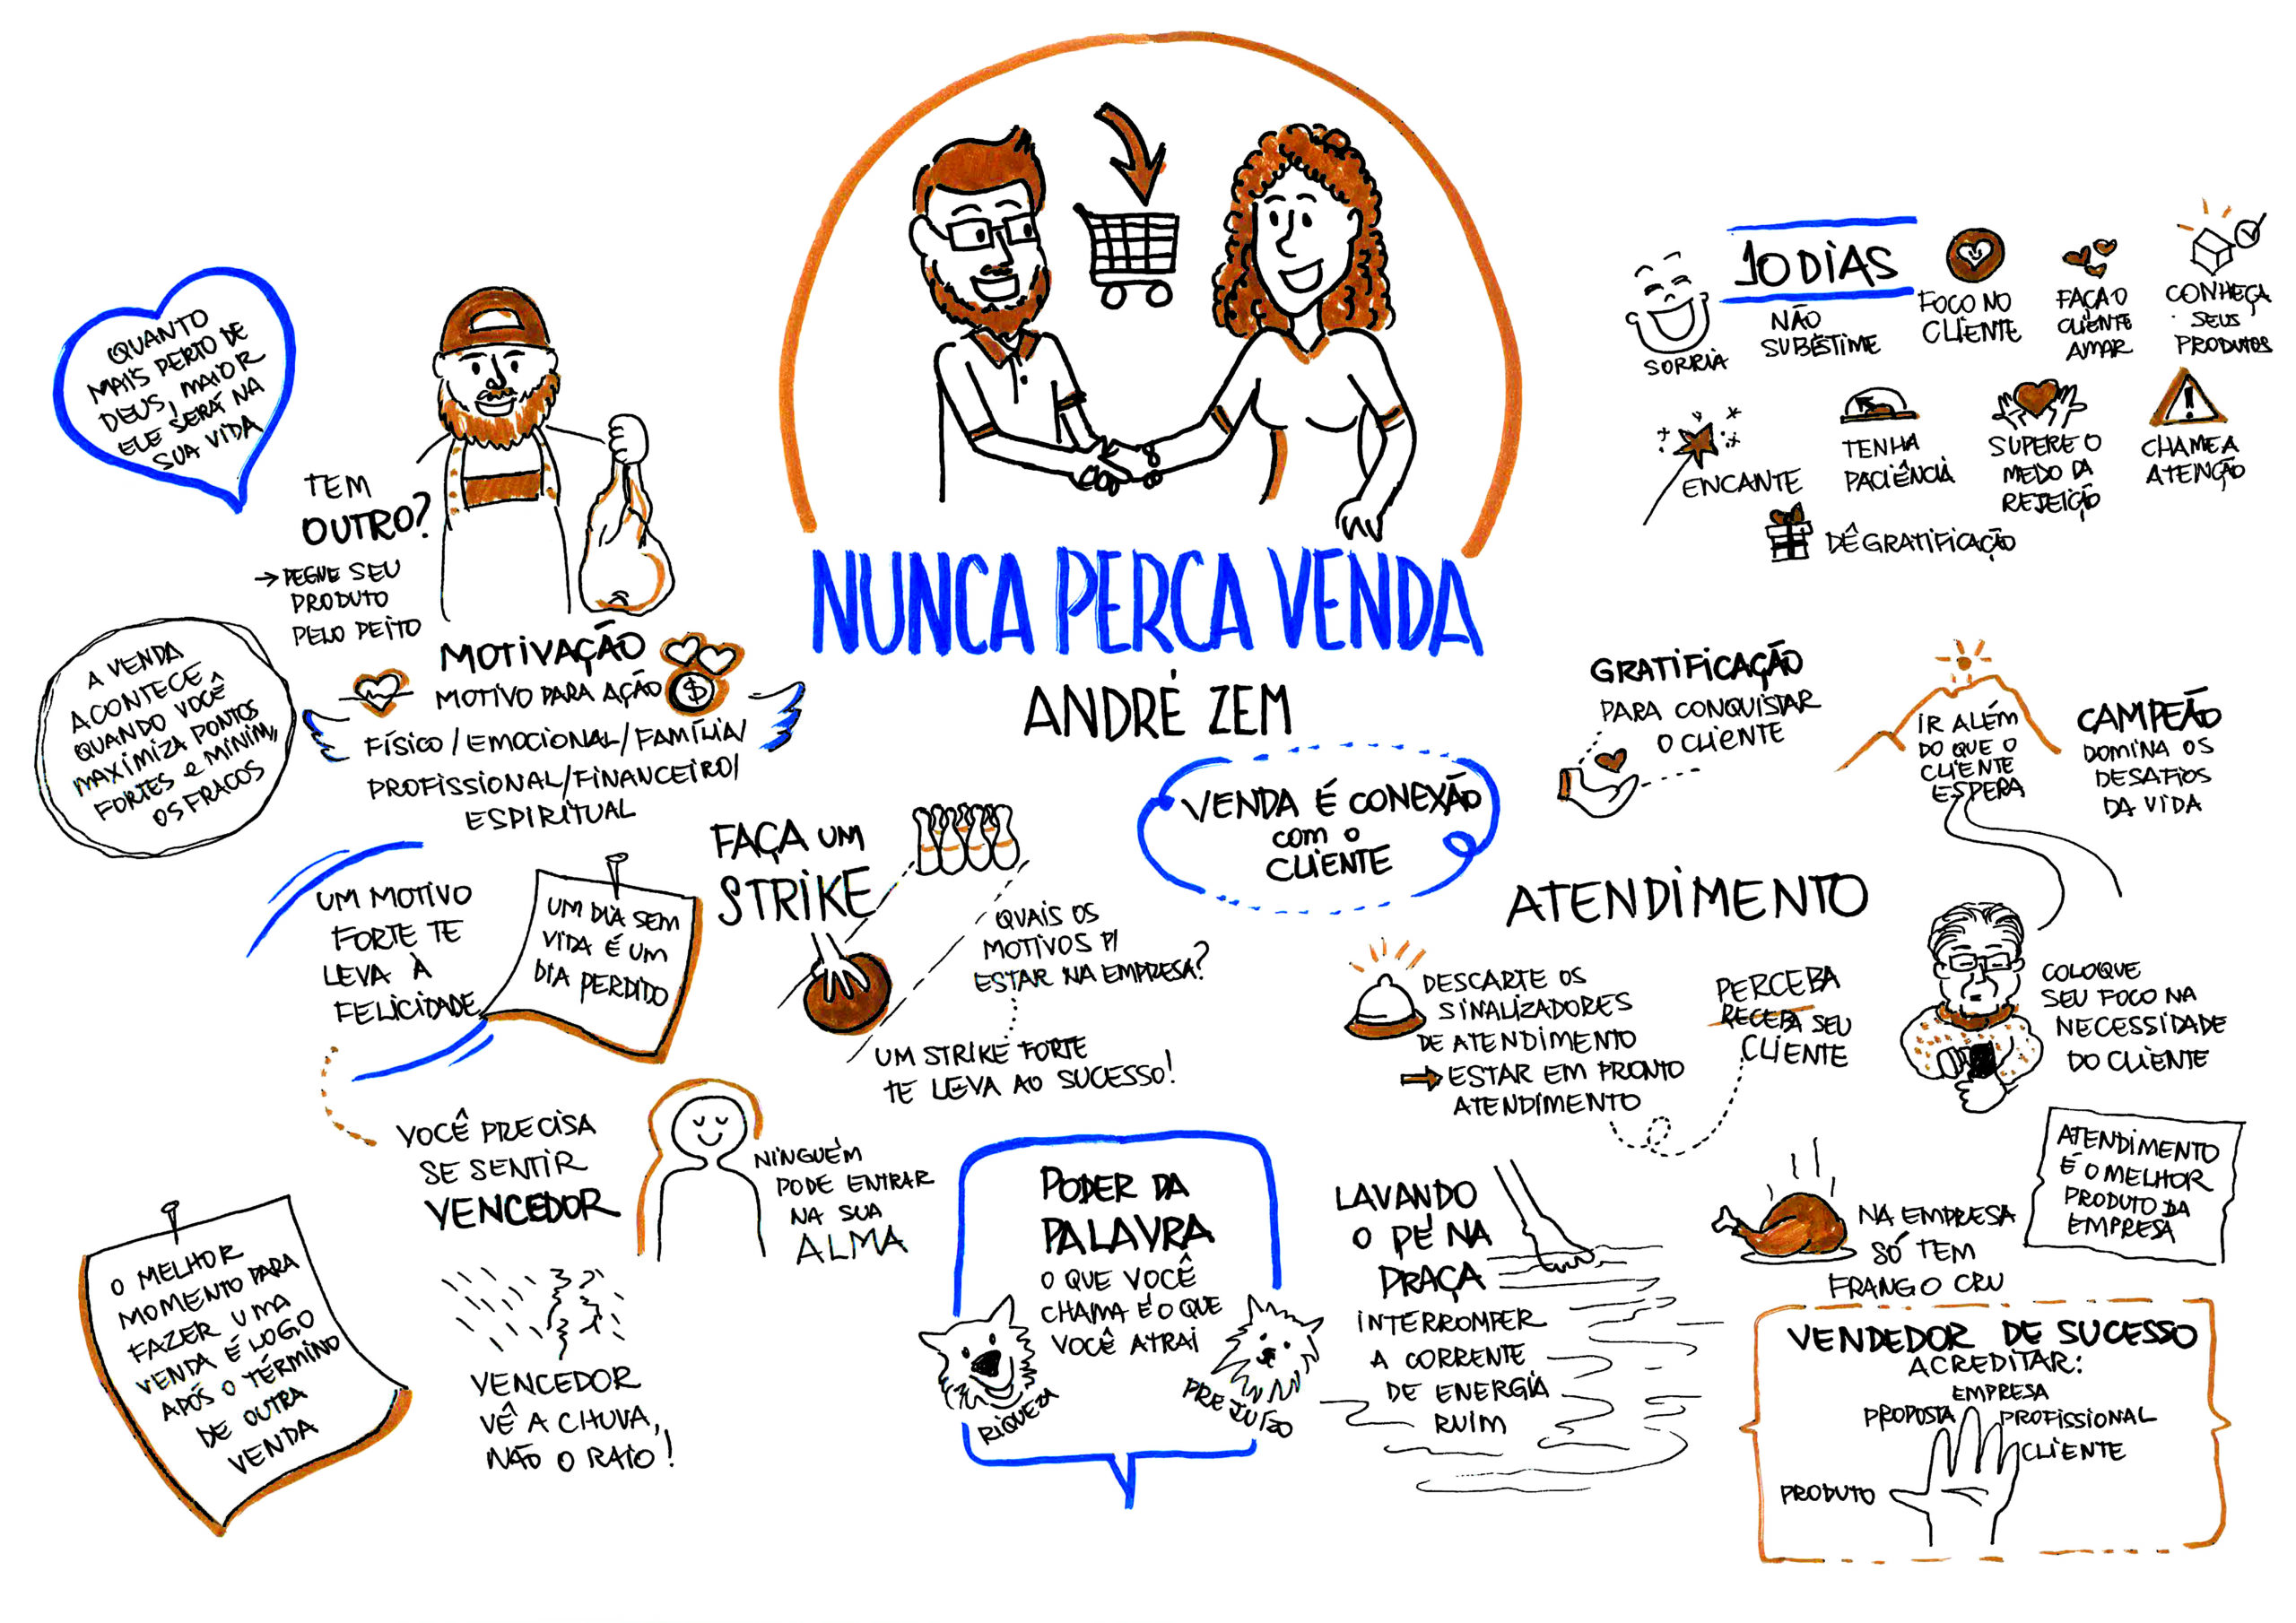 NUNCA PERCA VENDA
ANDRÉ ZEM
QUANTO
MAIS PERTO DE
DEUS, MAIOR
ELE SERÁ NA
SUA VIDA
TEM
OUTRO?
→ PEGUE SEU
PRODUTO
PELO PEITO
A VENDA
ACONTECE
QUANDO VOCÊ
MAXIMIZA PONTOS
FORTES e MINIM,
OS FRACOS
MOTIVAÇÃO
MOTIVO PARA AÇÃO
$
FÍSICO / EMOCIONAL / FAMÍLIA/
PROFISSIONAL/FINANCEIRO/
ESPIRITUAL
UM MOTIVO
FORTE TE
LEVA À
FELICIDADE
UM DIA SEM
VIDA É UM
DIA PERDIDO
FAÇA UM
STRIKE
QUAIS OS
MOTIVOS P/
ESTAR NA EMPRESA?
UM STRIKE FORTE
TE LEVA AO SUCESSO!
VOCÊ PRECISA
SE SENTIR
VENCEDOR
NINGUÉM
PODE ENTRAR
NA SUA
ALMA
O MELHOR
MOMENTO PARA
FAZER UMA
VENDA É LOGO
APÓS O TÉRMINO
DE OUTRA
VENDA
VENCEDOR
VÊ A CHUVA,
NÃO O RAIO!
VENDA É CONEXÃO
com o
CLIENTE
PODER DA
PALAVRA
O QUE VOCÊ
CHAMA É O QUE
VOCÊ ATRAI
RIQUEZA
PREJUÍZO
LAVANDO
O PÉ NA
PRAÇA
INTERROMPER
A CORRENTE
DE ENERGIA
RUIM
10 DIAS
SORRIA
NÃO
SUBESTIME
FOCO NO
CLIENTE
FAÇA O
CLIENTE
AMAR
CONHEÇA
SEUS
PRODUTOS
ENCANTE
TENHA
PACIÊNCIA
SUPERE O
MEDO DA
REJEIÇÃO
CHAME A
ATENÇÃO
DÊ GRATIFICAÇÃO
GRATIFICAÇÃO
PARA CONQUISTAR
O CLIENTE
IR ALÉM
DO QUE O
CLIENTE
ESPERA
CAMPEÃO
DOMINA OS
DESAFIOS
DA VIDA
ATENDIMENTO
DESCARTE OS
SINALIZADORES
DE ATENDIMENTO
ESTAR EM PRONTO
ATENDIMENTO
PERCEBA
RECEBA SEU
CLIENTE
COLOQUE
SEU FOCO NA
NECESSIDADE
DO CLIENTE
NA EMPRESA
SÓ TEM
FRANGO CRU
ATENDIMENTO
É O MELHOR
PRODUTO DA
EMPRESA
VENDEDOR DE SUCESSO
ACREDITAR:
EMPRESA
PROPOSTA
PROFISSIONAL
CLIENTE
PRODUTO